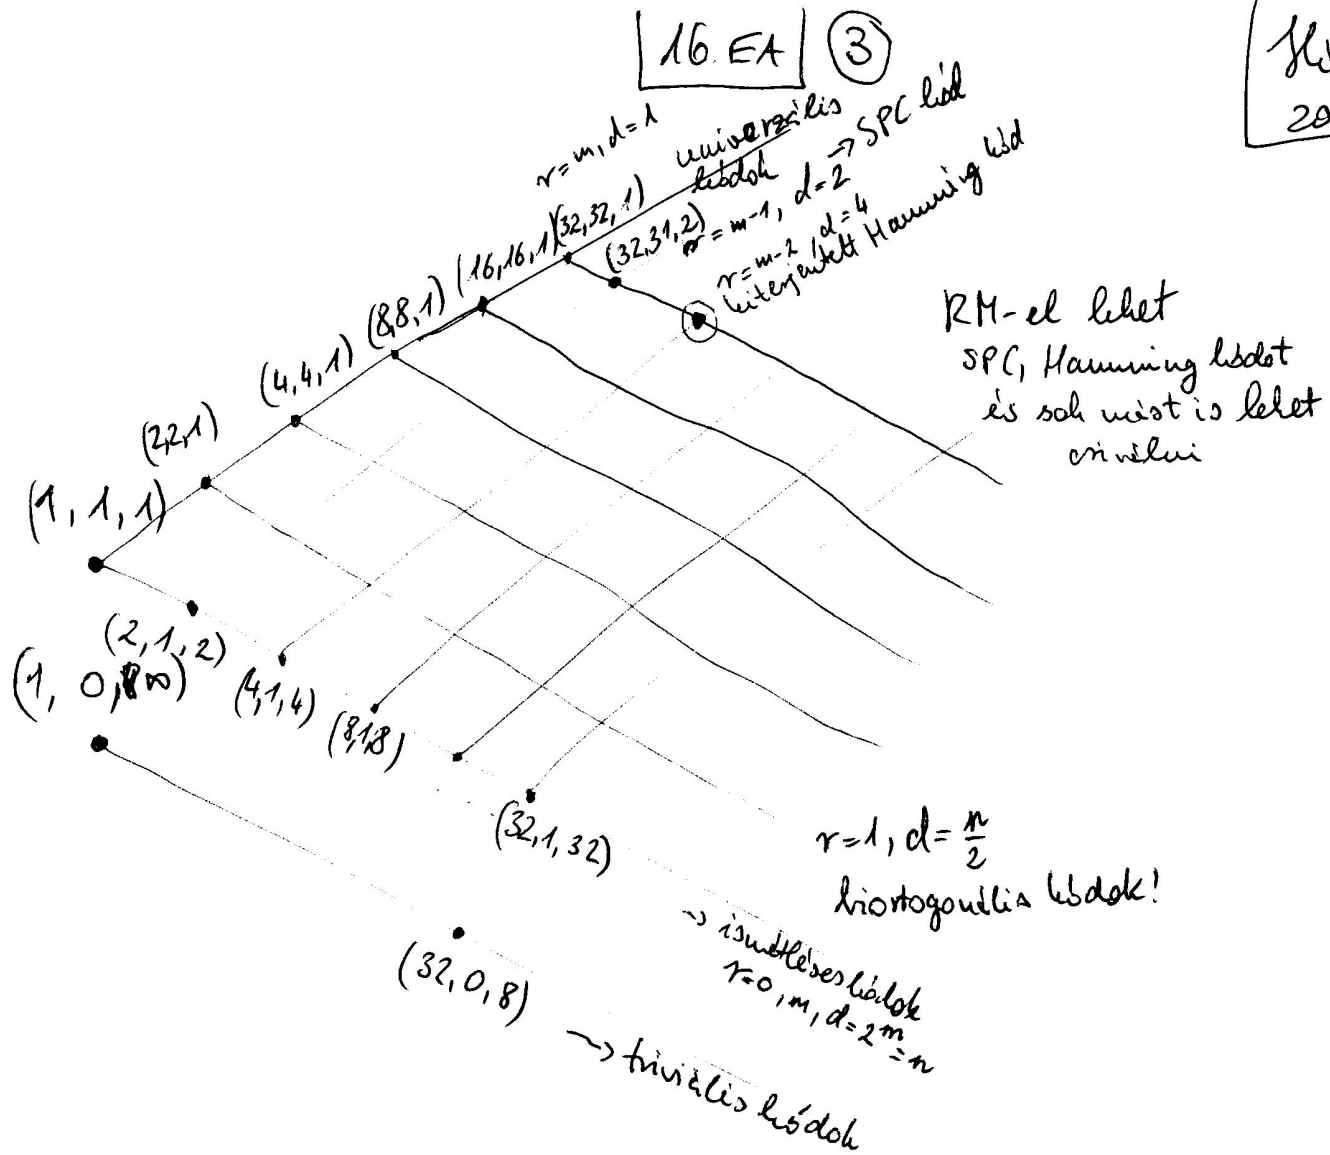 16. EA
3
20
r=m, d=1
univerzális
kódok
r=m-1, d=2 → SPC kód
r=m-2, d=4
kiterjesztett Hamming kód
(32,32,1)
(32,31,2)
(16,16,1)
(8,8,1)
(4,4,1)
(2,2,1)
(1, 1, 1)
RM-el lehet
SPC, Hamming kódot
és sok mást is lehet
csinálni
(2,1,2)
(1, 0, ∞)
(4,1,4)
(8,1,8)
(32,1,32)
r=1, d=n/2
biortogonális kódok!
→ ismétléses kódok
r=0, m, d=2^m=n
(32,0,8)
→ triviális kódok